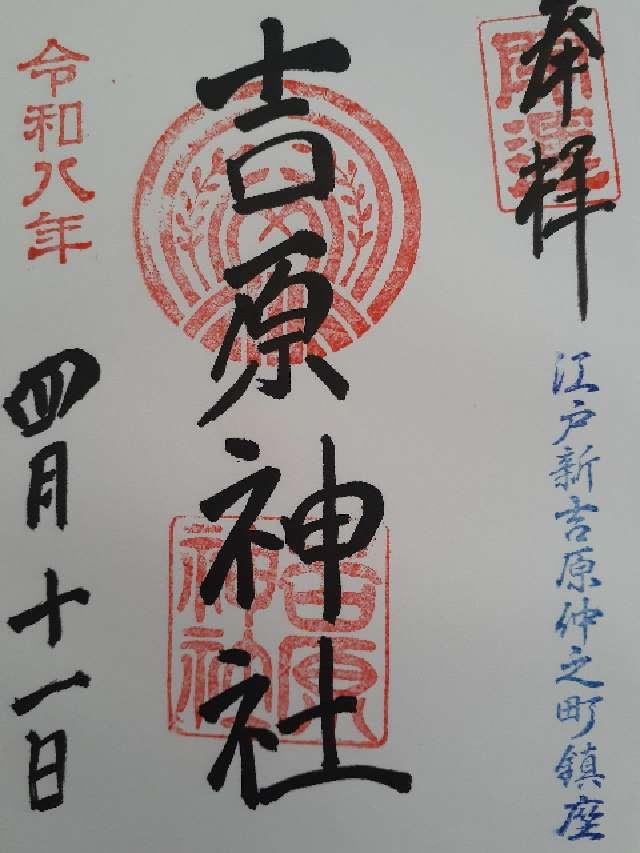 奉拝
江戸新吉原仲之町鎮座
吉原神社
吉原神社
令和八年
四月十一日